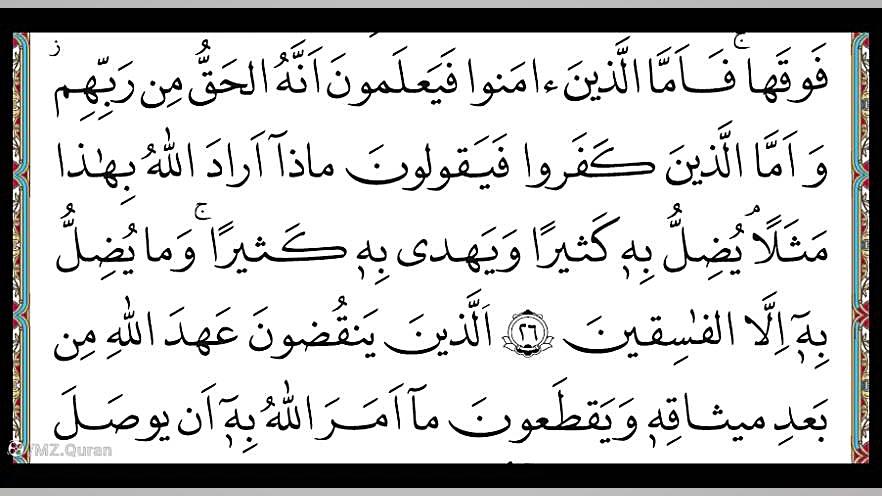 فَوقَها ۚ فَاَمَّا الَّذينَ ءامَنوا فَيَعلَمونَ اَنَّهُ الحَقُّ مِن رَبِّهِم ز
وَ اَمَّا الَّذينَ كَفَروا فَيَقولونَ ماذآ اَرادَ اللّٰهُ بِهٰذا
مَثَلًا ۘ يُضِلُّ بِهٖ كَثيرًا وَيَهدى بِهٖ كَثيرًا ۚ وَما يُضِلُّ
بِهٖٓ اِلَّا الفٰسِقينَ ٢٦ اَلَّذينَ يَنقُضونَ عَهدَ اللّٰهِ مِن
بَعدِ ميثاقِهٖ وَيَقطَعونَ مآ اَمَرَ اللّٰهُ بِهٖٓ اَن يوصَلَ
YMZ.Quran